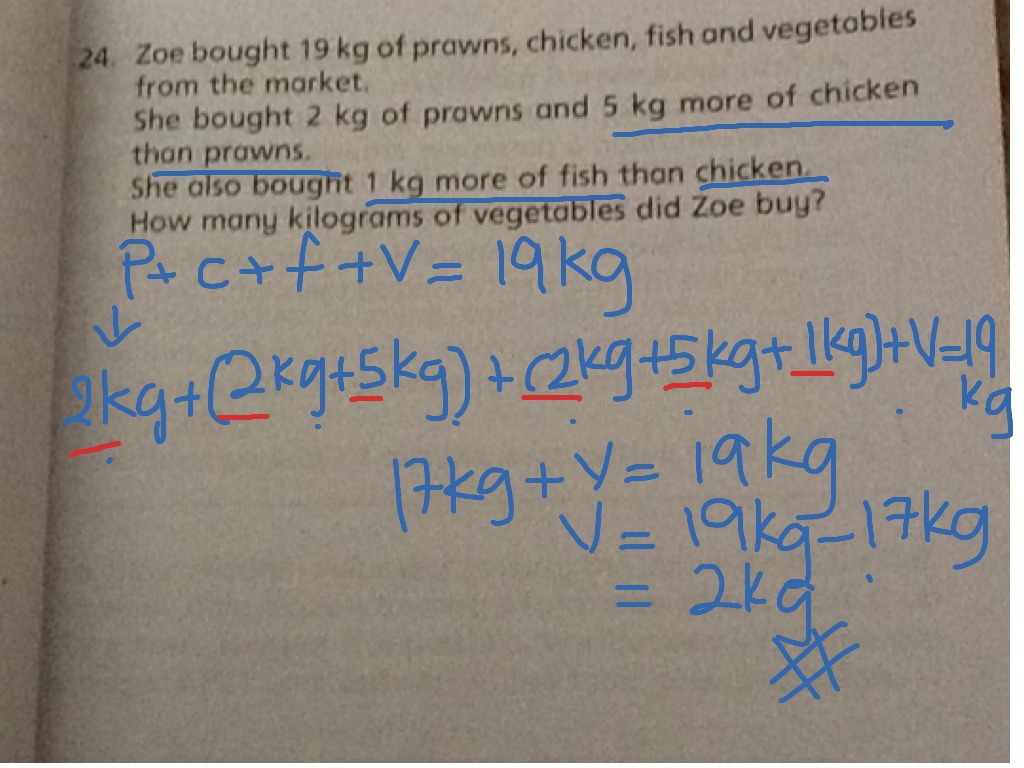 24. Zoe bought 19 kg of prawns, chicken, fish and vegetables
from the market.
She bought 2 kg of prawns and 5 kg more of chicken
than prawns.
She also bought 1 kg more of fish than chicken.
How many kilograms of vegetables did Zoe buy?
P+ c + f + V = 19 kg
2kg + (2kg+5kg) + (2kg+5kg+1kg)+V=19
kg
17kg + V = 19 kg
V = 19kg-17kg
= 2kg